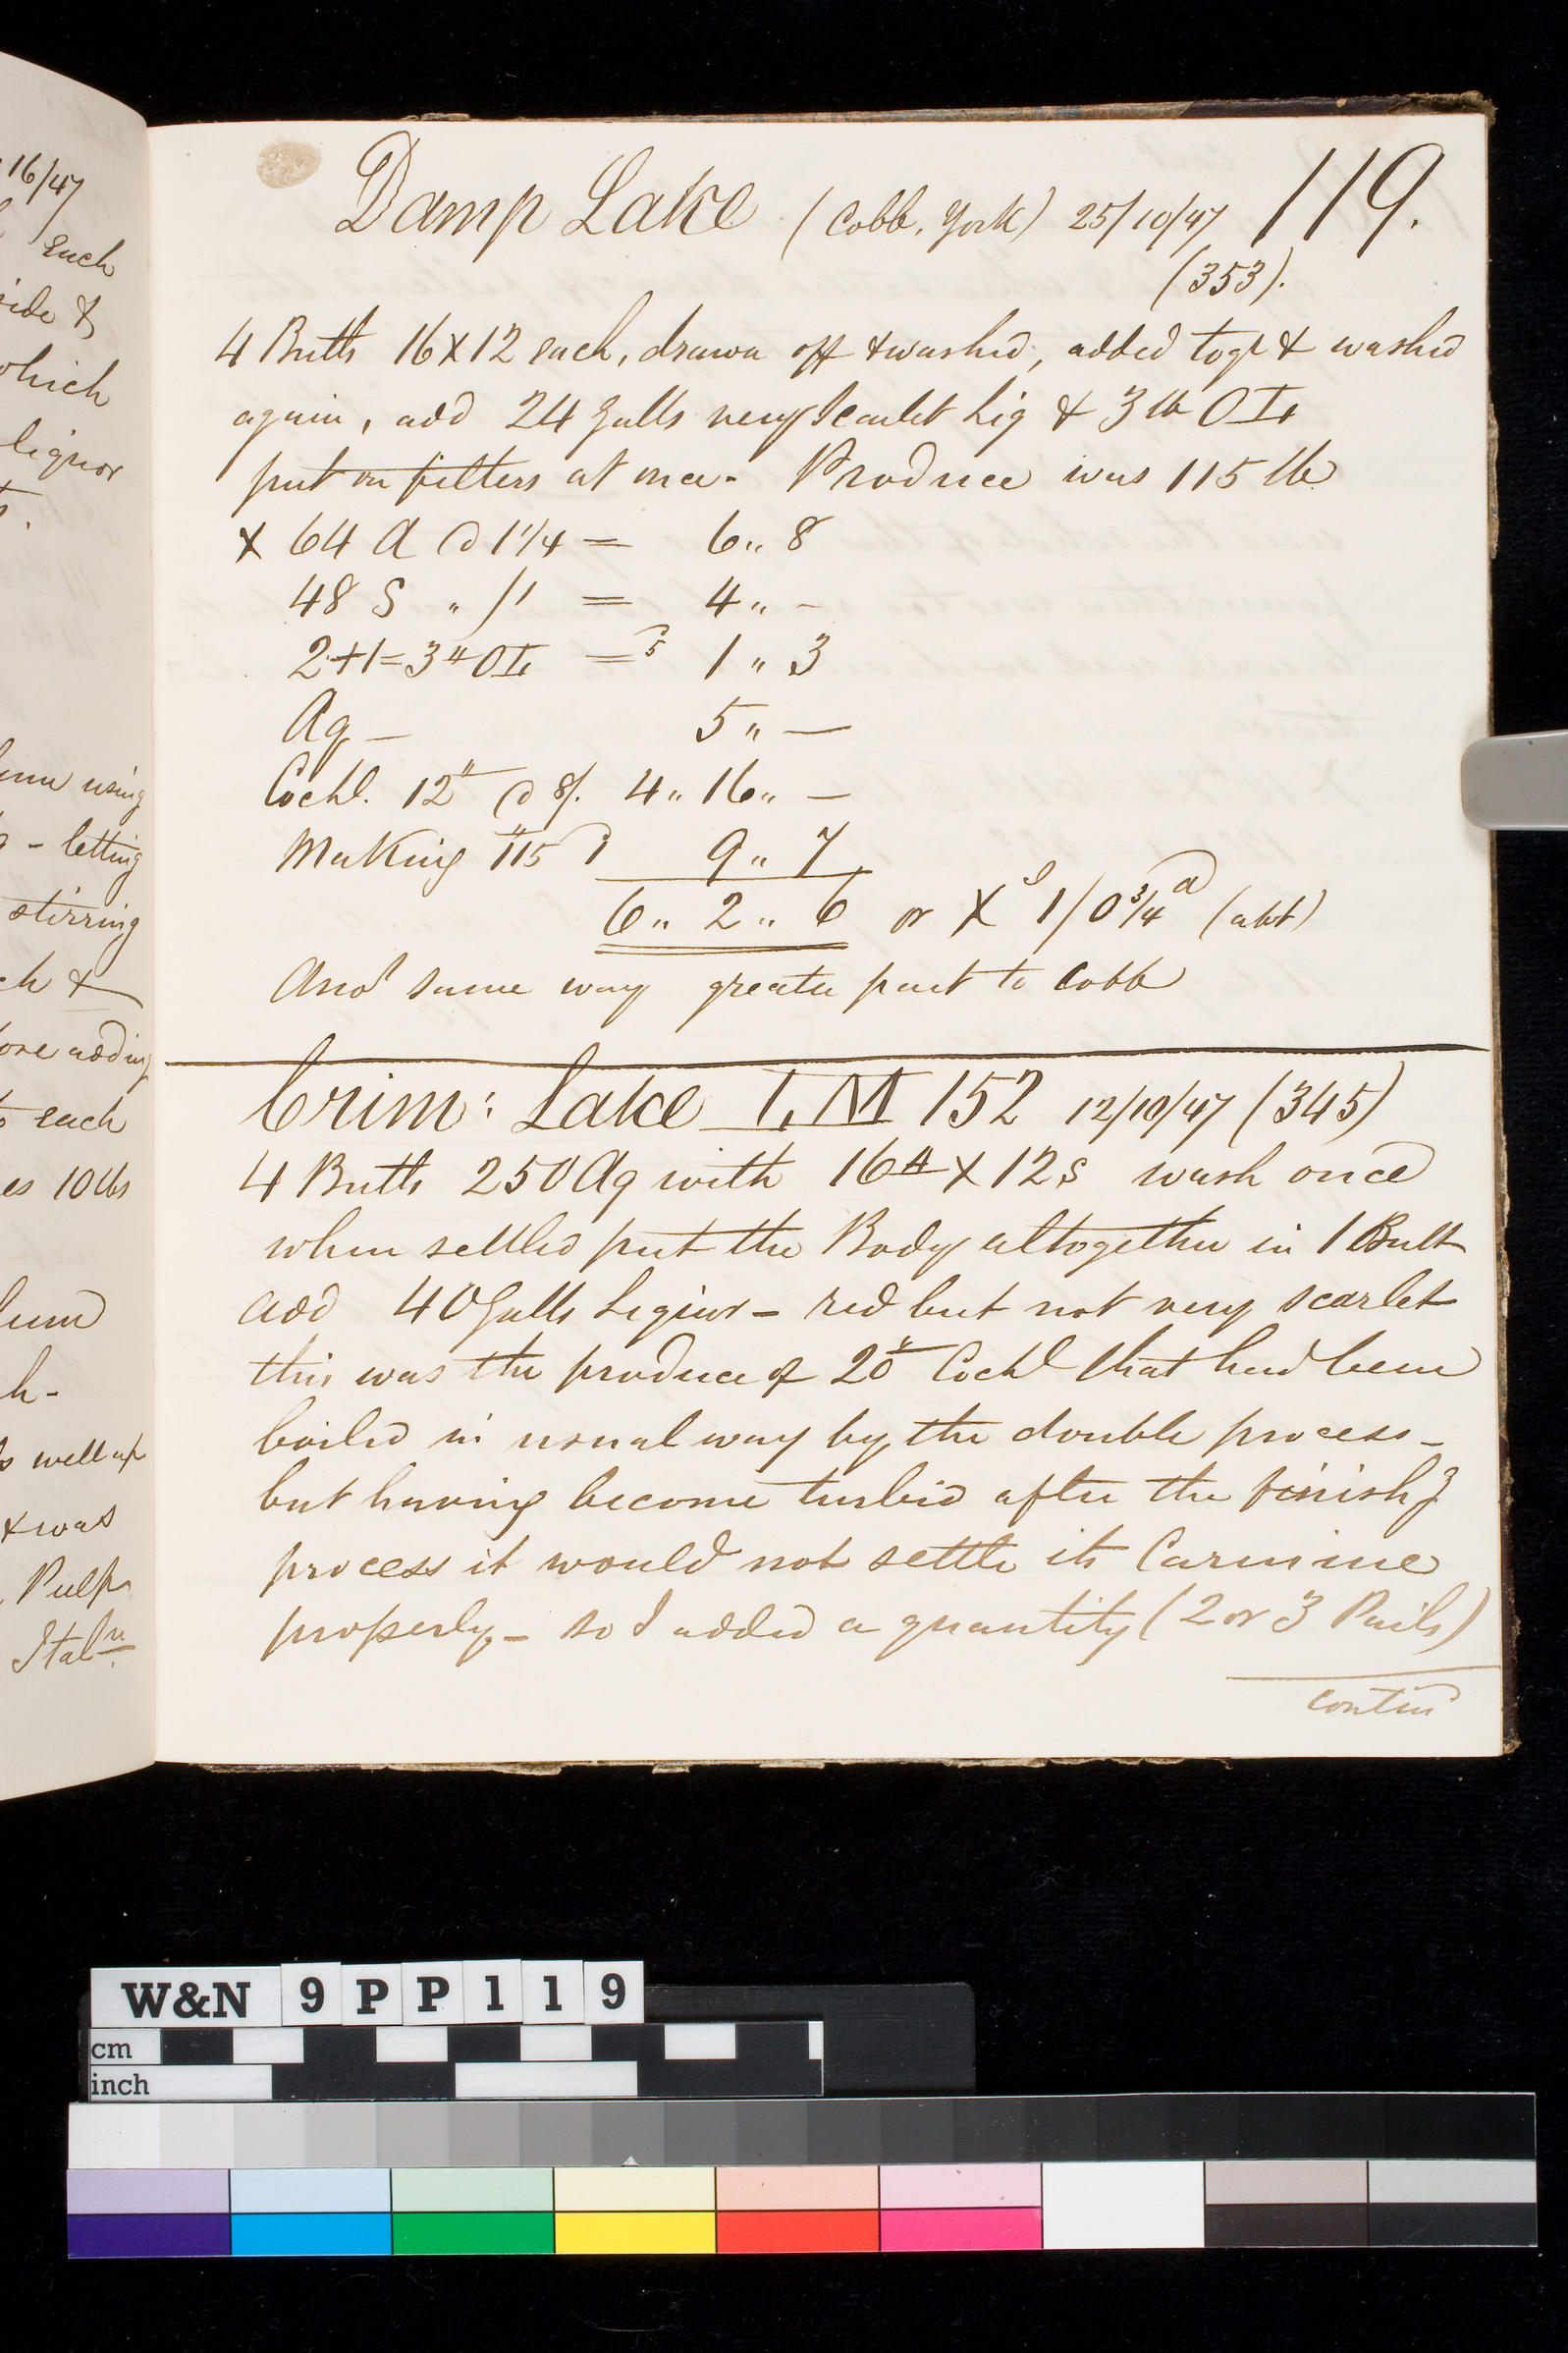 16/47
such
side &
which
liquor
using
- letting
stirring
&
adding
each
10 lbs
h -
well up
& was
Pulp
Ital.n
Damp Lake (Cobb, York) 25/10/47 119.
(353).
4 Butts 16 X 12 each, drawn off & washed, added togr & washed
again, add 24 Galls very Scarlet Liq & 3 lb O I
put on filters at once - Produce was 115 lb
X 64 A @ 1 1/4 = 6 ,, 8
48 S ,, /1 = 4 ,, -
2 + 1 = 3 # O I = 1 ,, 3
Aq — 5 ,, —
Cochl. 12 # @ 8/. 4 ,, 16 ,, —
Making 115 # 9 ,, 7
6 ,, 2 ,, 6 or X 1/0 3/4 d (abt)
Anor same way greater part to Cobb
Crim: Lake L M 152 12/10/47 (345)
4 Butts 250 Aq with 16 A X 12 S wash once
when settled put the Body altogether in 1 Butt
add 40 Galls Liquor - red but not very scarlet
this was the produce of 20 # Cochl that had been
boiled in usual way by the double process -
but having become turbid after the finishg
process it would not settle its Carmine
properly - so I added a quantity (2 or 3 Pails)
contind
W&N 9 P P 1 1 9
cm
inch